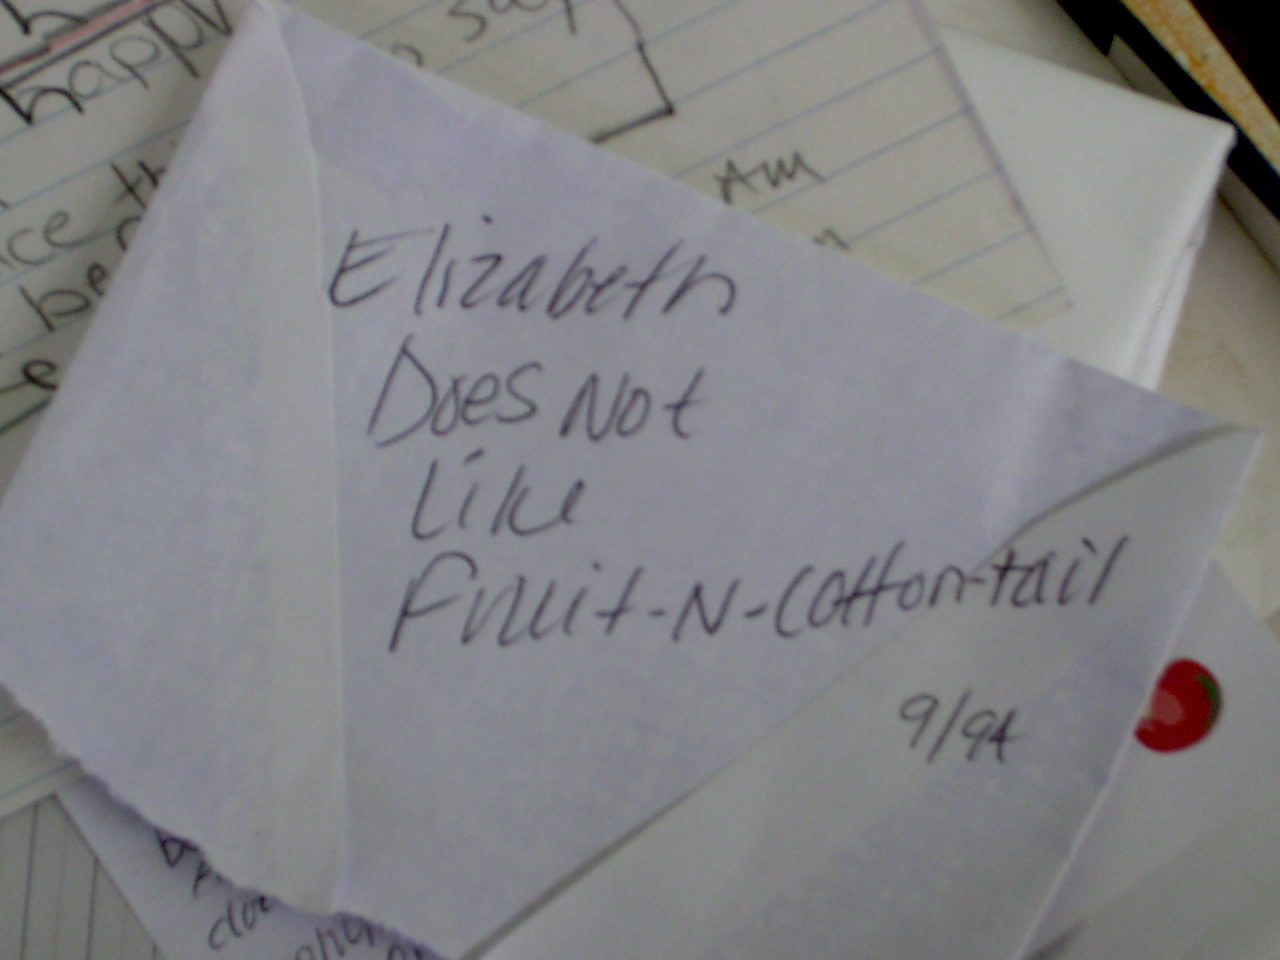 happy
say
Am
Elizabeth
Does Not
Like
Fruit-N-Cotton-tail
9/94